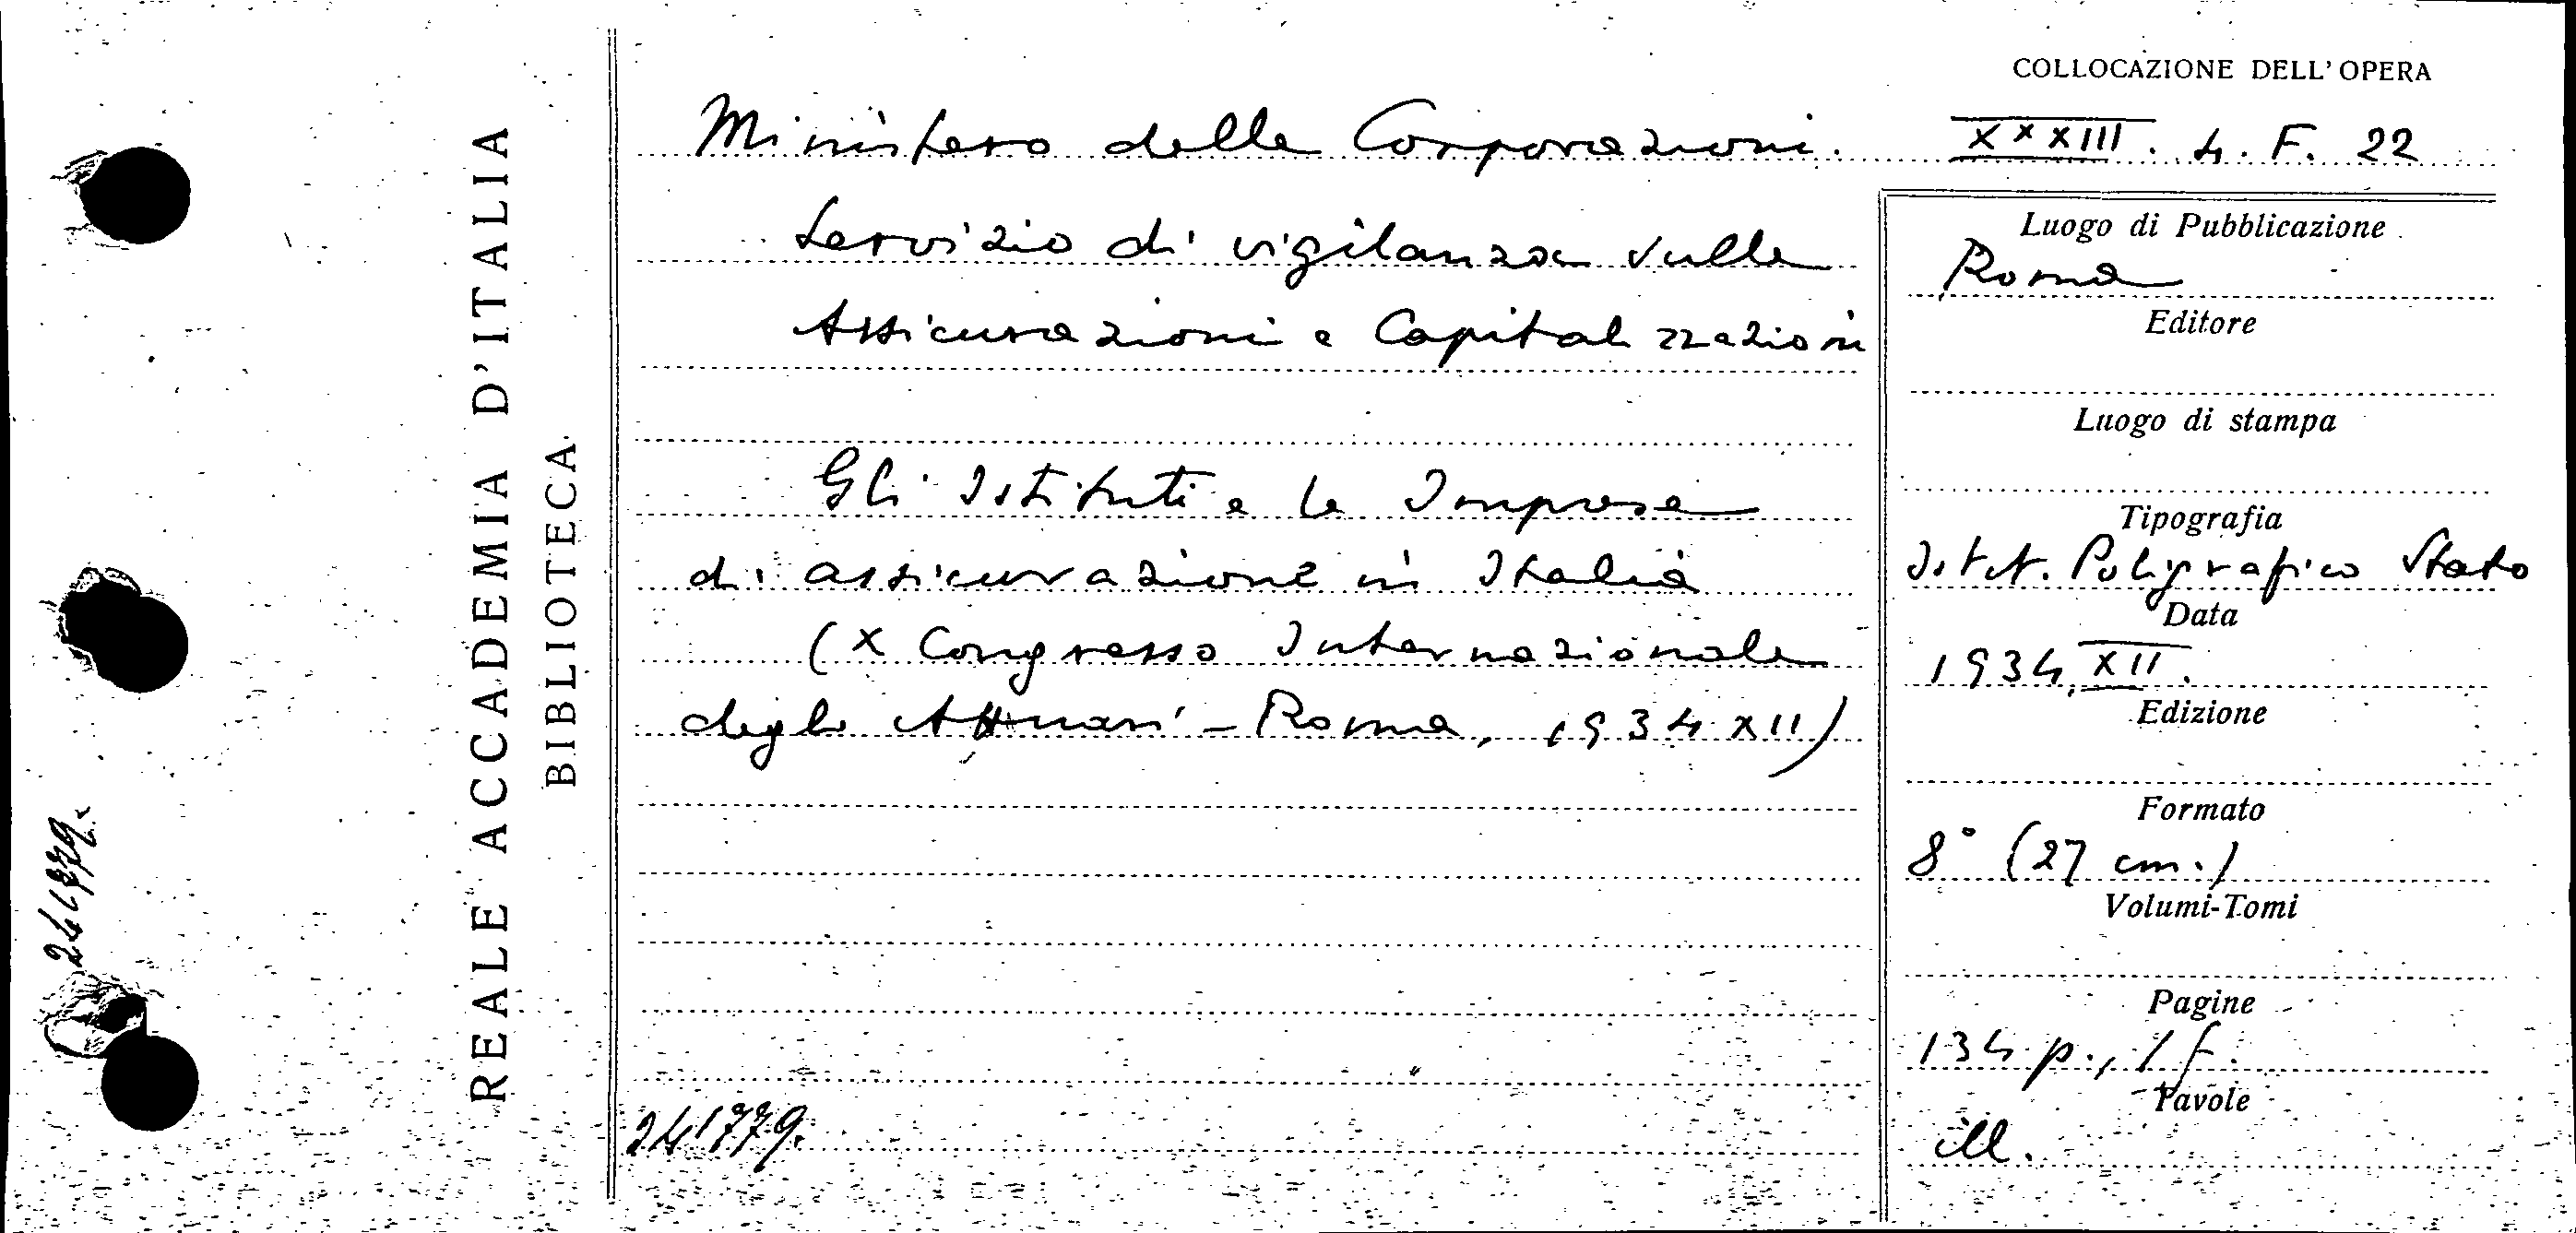 REALE ACCADEMIA D'ITALIA
BIBLIOTECA
241779.
Ministero delle Corporazioni.
Servizio di vigilanza sulle
Assicurazioni e Capitalizzazioni
Gli Istituti e le Imprese
di assicurazione in Italia
(X Congresso Internazionale
degli Attuari - Roma, 1934 XII)
241779.
COLLOCAZIONE DELL'OPERA
XXXIII. 4. F. 22
Luogo di Pubblicazione
Roma
Editore
Luogo di stampa
Tipografia
Istit. Poligrafico Stato
Data
1934, XII.
Edizione
Formato
8° (27 cm.)
Volumi-Tomi
Pagine
134 p., 1 f.
Tavole
ill.